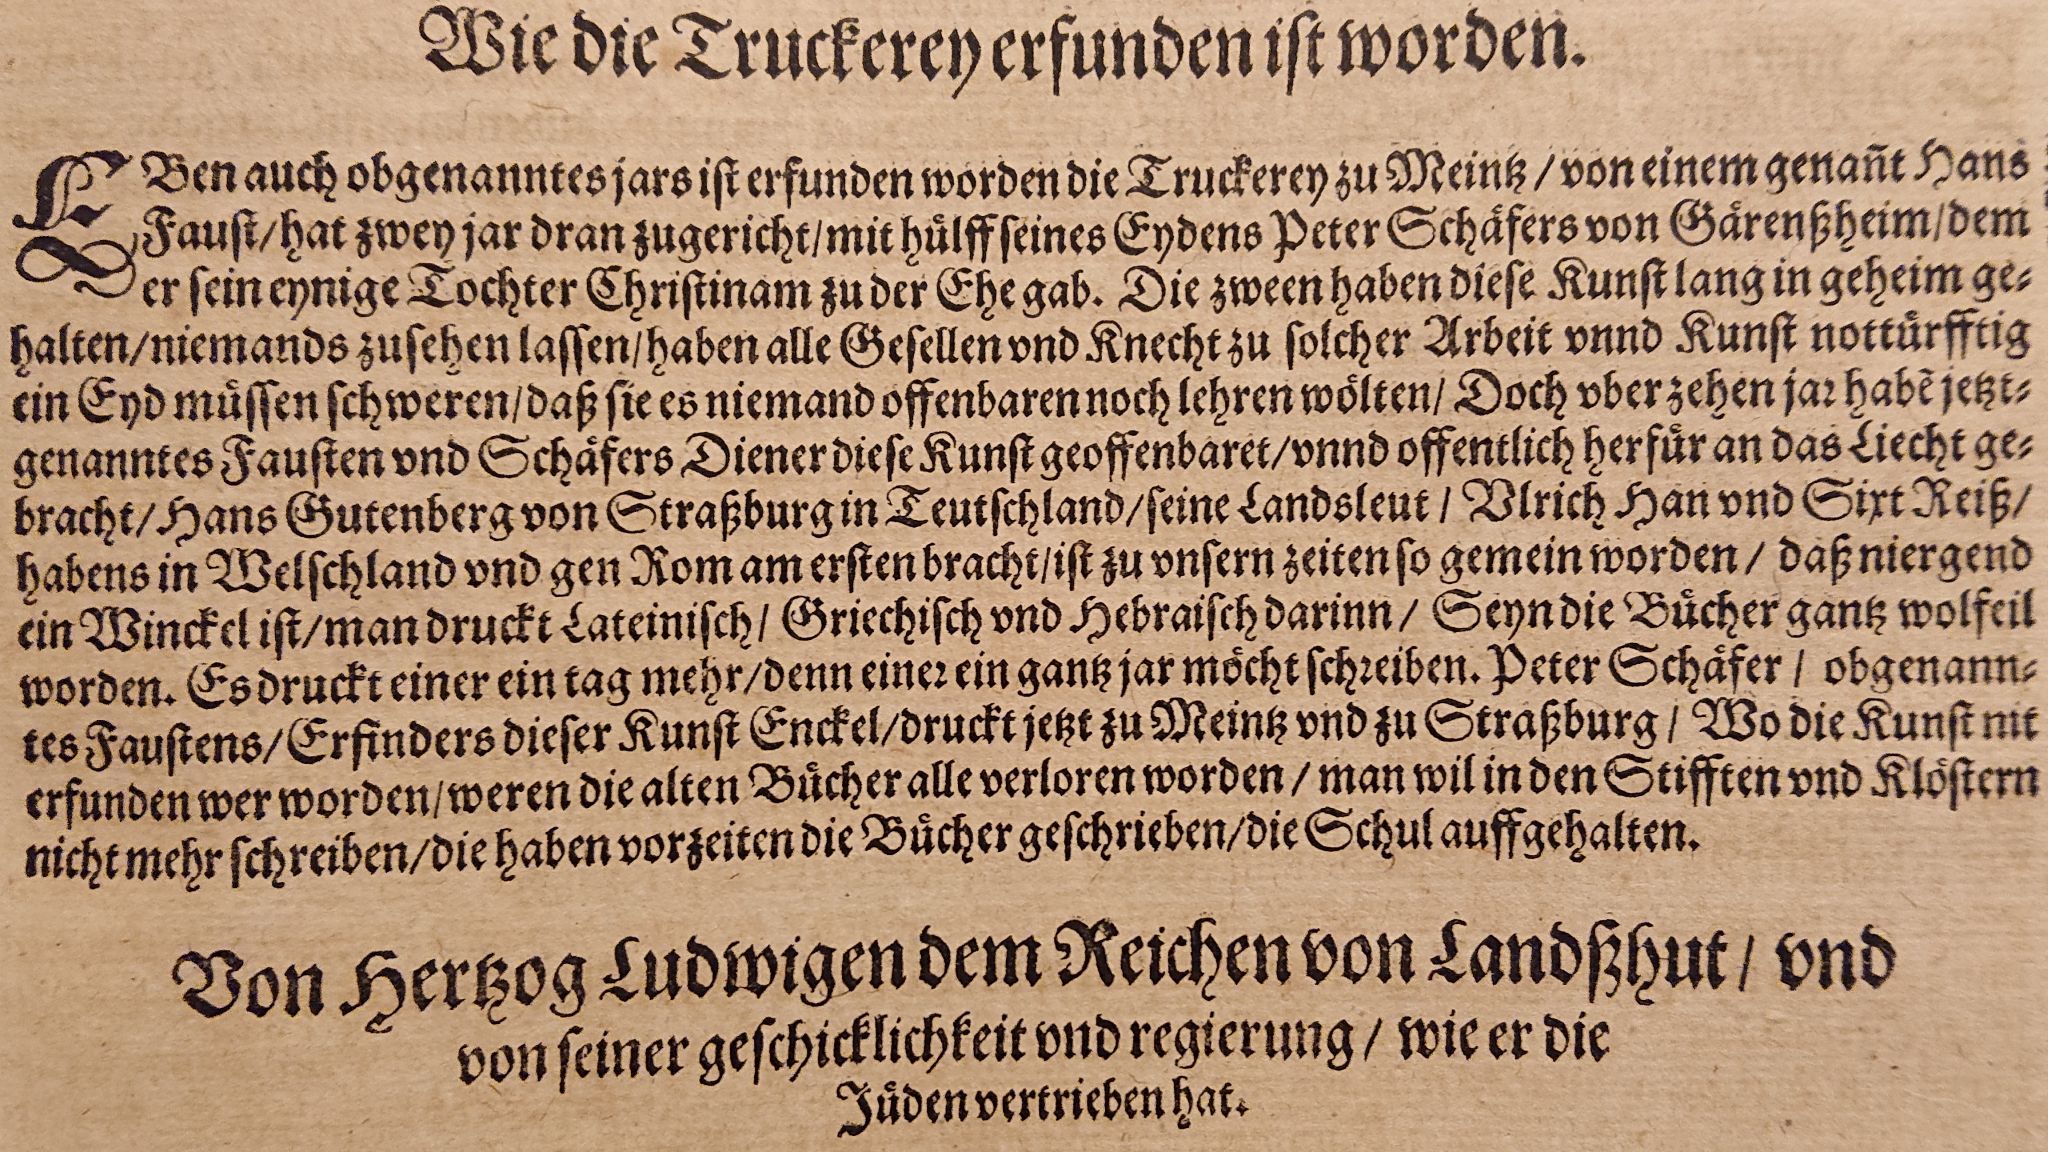 Wie die Truckerey erfunden ist worden.
EBen auch obgenanntes jars ist erfunden worden die Truckerey zu Meintz / von einem genañt Hans
Faust/hat zwey jar dran zugericht/mit hůlff seines Eydens Peter Schåfers von Gårenßheim/dem
er sein eynige Tochter Christinam zu der Ehe gab. Die zween haben diese Kunst lang in geheim ge-
halten/niemands zusehen lassen/haben alle Gesellen vnd Knecht zu solcher Arbeit vnnd Kunst nottůrfftig
ein Eyd můssen schweren/daß sie es niemand offenbaren noch lehren wölten/ Doch vber zehen jar habẽ jetzt-
genanntes Fausten vnd Schåfers Diener diese Kunst geoffenbaret/vnnd offentlich herfůr an das Liecht ge-
bracht/Hans Gutenberg von Straßburg in Teutschland/seine Landsleut / Vlrich Han vnd Sixt Reiß/
habens in Welschland vnd gen Rom am ersten bracht/ist zu vnsern zeiten so gemein worden / daß niergend
ein Winckel ist/man druckt Lateinisch/ Griechisch vnd Hebraisch darinn / Seyn die Bůcher gantz wolfeil
worden. Es druckt einer ein tag mehr/denn einer ein gantz jar möcht schreiben. Peter Schåfer / obgenann-
tes Faustens/Erfinders dieser Kunst Enckel/druckt jetzt zu Meintz vnd zu Straßburg / Wo die Kunst nit
erfunden wer worden/weren die alten Bůcher alle verloren worden / man wil in den Stifften vnd Klöstern
nicht mehr schreiben/die haben vorzeiten die Bůcher geschrieben/die Schul auffgehalten.
Von Hertzog Ludwigen dem Reichen von Landßhut / vnd
von seiner geschicklichkeit vnd regierung / wie er die
Jůden vertrieben hat.